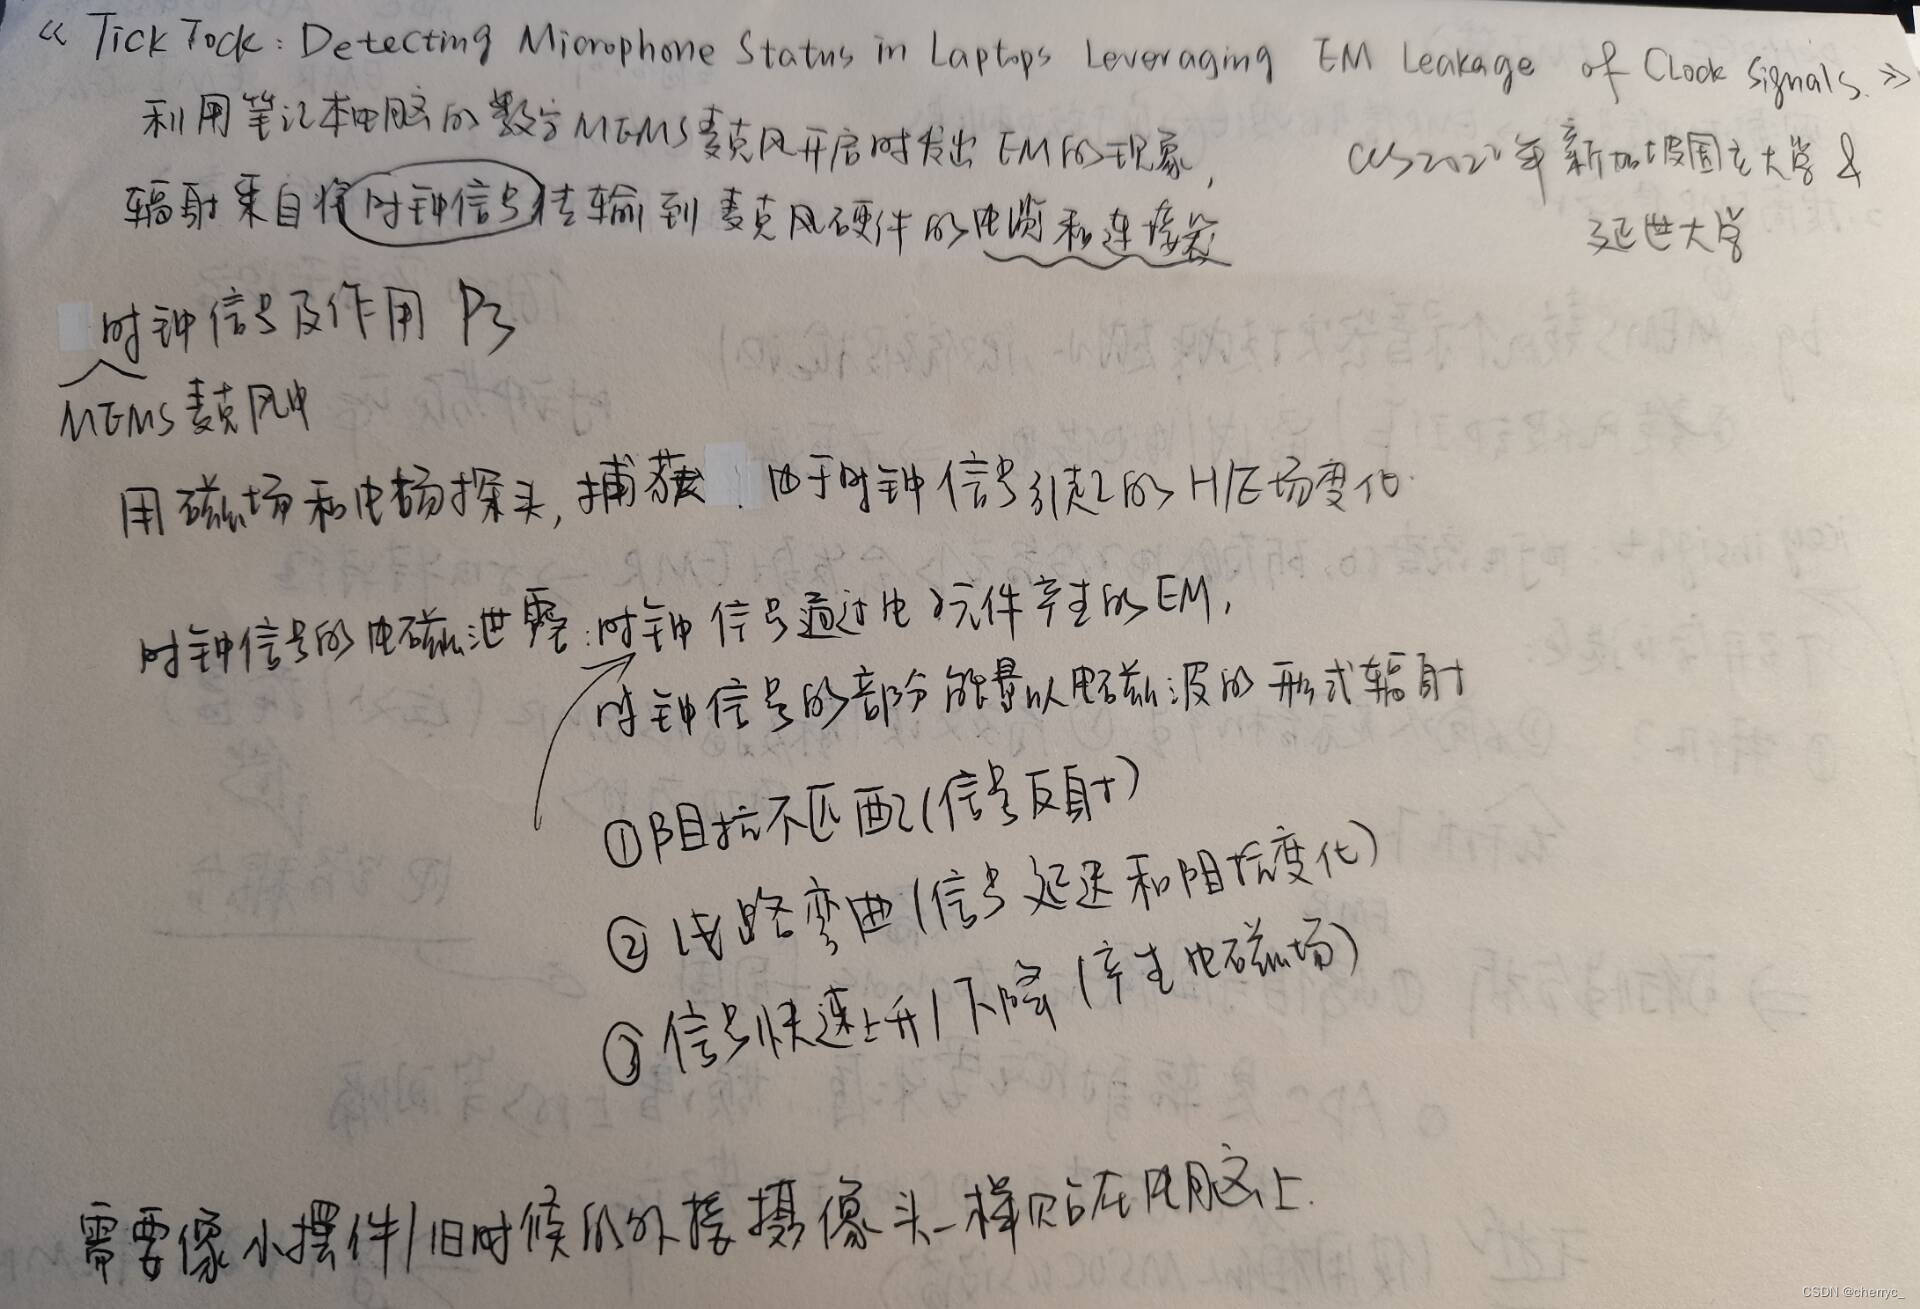 《 TickTock: Detecting Microphone Status in Laptops Leveraging EM Leakage of Clock Signals.》
利用笔记本电脑的数字MEMS麦克风开启时发出EM的现象,
CCS2022年新加坡国立大学&
延世大学
辐射来自将时钟信号传输到麦克风硬件的电缆和连接器
时钟信号及作用 P3
MEMS麦克风中
用磁场和电场探头,捕获 由于时钟信号引起的H/E场变化.
时钟信号的电磁泄露:时钟信号通过电子元件产生的EM,
时钟信号的部分能量以电磁波的形式辐射
①阻抗不匹配(信号反射)
②线路弯曲(信号延迟和阻抗变化)
③信号快速上升/下降(产生电磁场)
需要像小摆件/旧时候的外接摄像头一样贴在电脑上.
CSDN @cherryc_